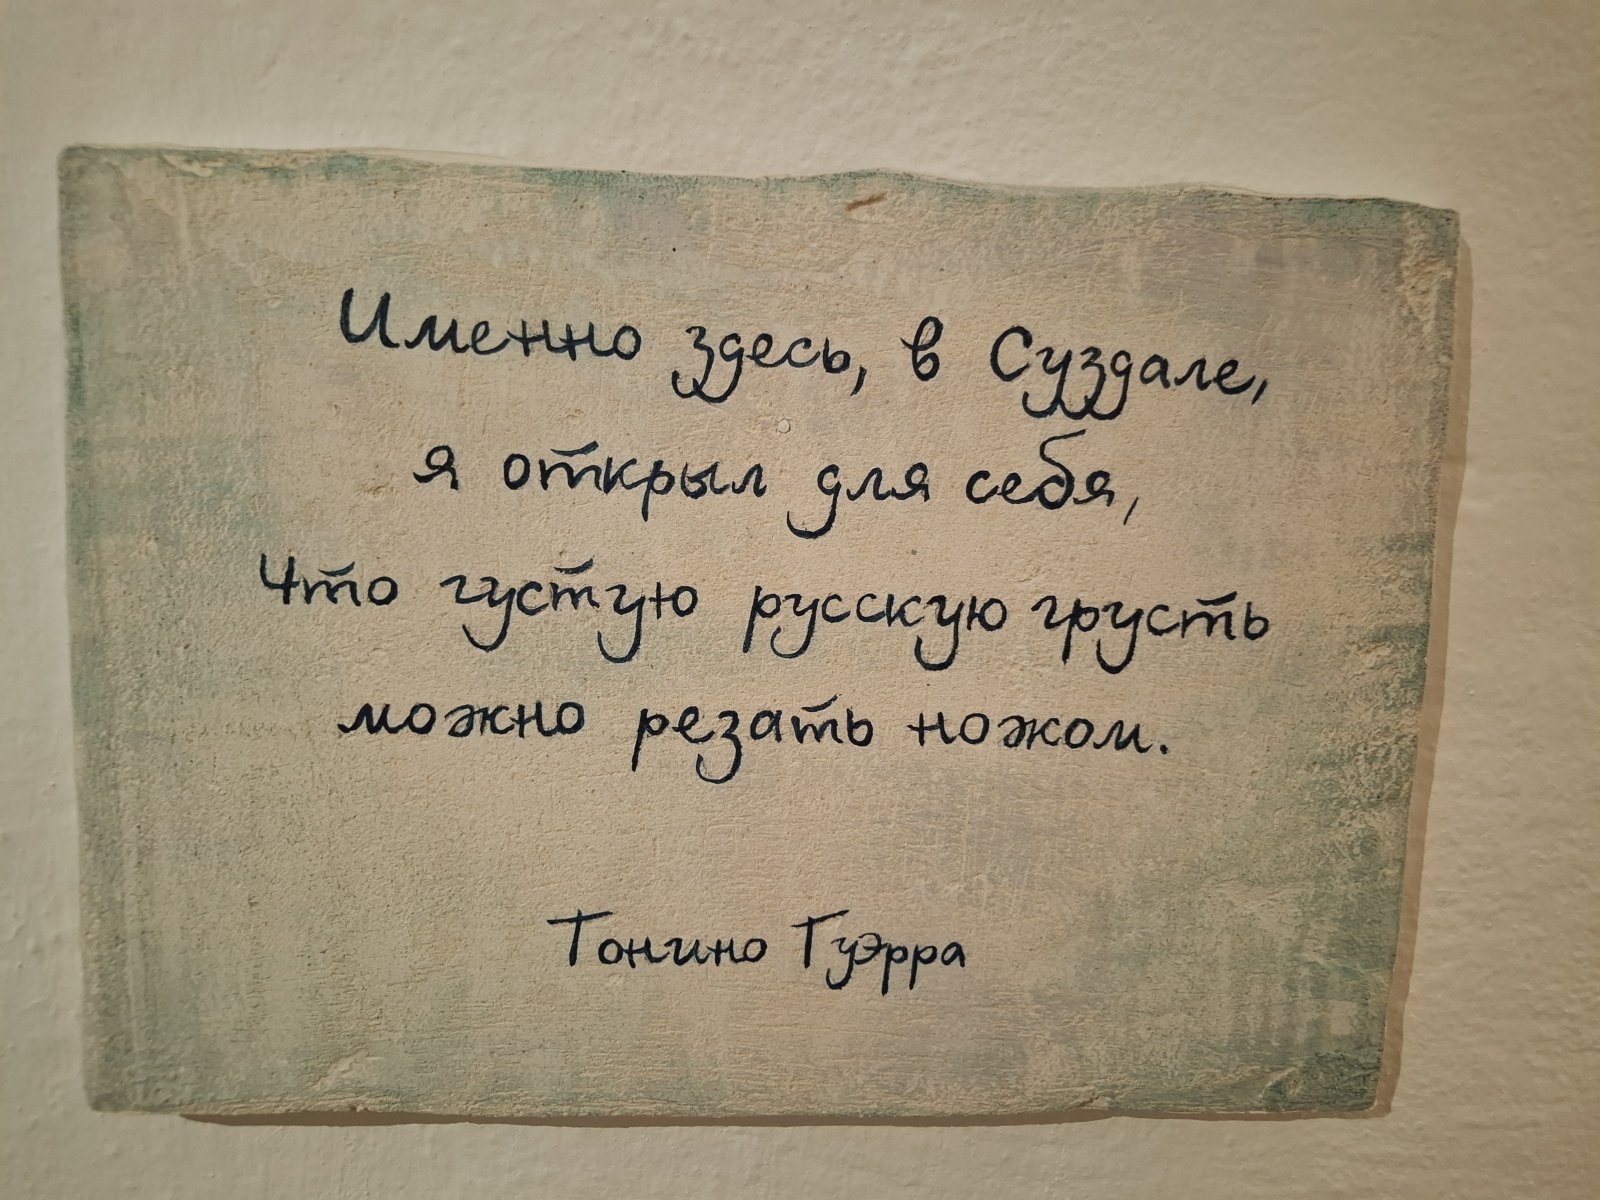 Именно здесь, в Суздале,
я открыл для себя,
что густую русскую грусть
можно резать ножом.
Тонино Гуэрра